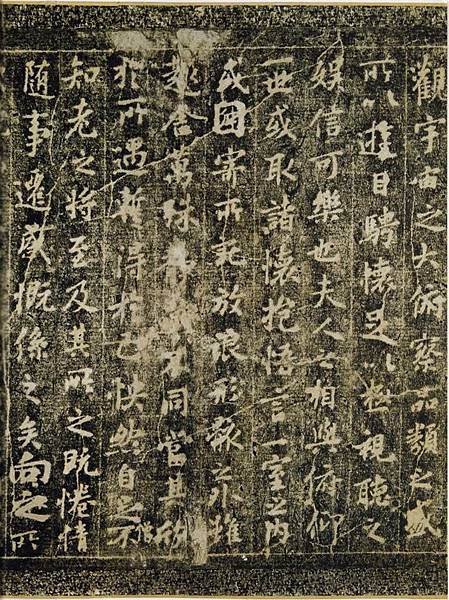 觀宇宙之大俯察品類之盛
所以遊目騁懷足以極視聽之
娛信可樂也夫人之相與俯仰
一世或取諸懷抱悟言一室之內
或因寄所託放浪形骸之外雖
趣舍萬殊靜躁不同當其欣
於所遇暫得於己快然自足不
知老之將至及其所之既惓情
随事遷感慨係之矣向之所